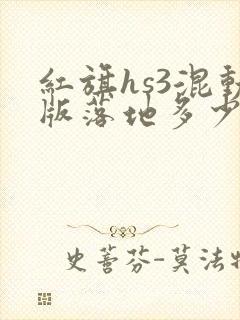 紅旗hs3混動
版落地多少
史蒈芬-莫法特